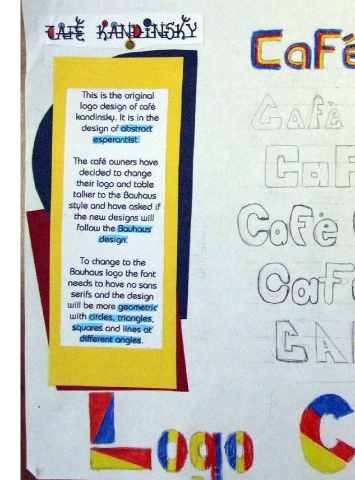 CAFÉ KANDINSKY
Café
This is the original
logo design of café
kandinsky. It is in the
design of abstract
esperantist.
The café owners have
decided to change
their logo and table
talker to the Bauhaus
style and have asked if
the new designs will
follow the Bauhaus
design.
To change to the
Bauhaus logo the font
needs to have no sans
serifs and the design
will be more geometric
with circles, triangles,
squares and lines at
different angles.
Café
Caf
Café
Caf
CA
Logo C